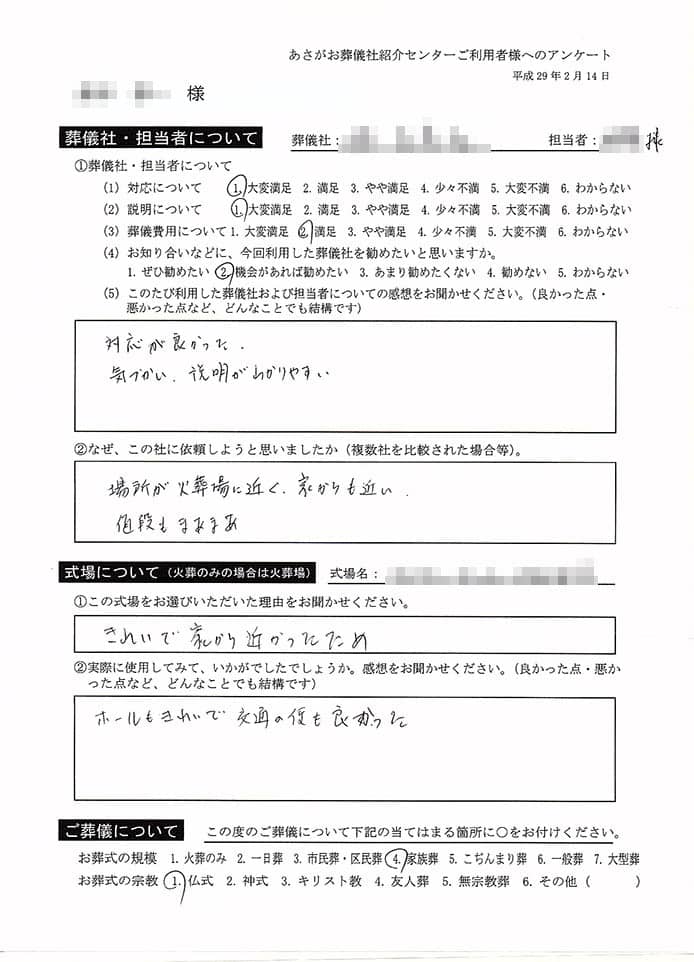 あさがお葬儀社紹介センターご利用者様へのアンケート
平成29年2月14日
様
葬儀社・担当者について 葬儀社: 担当者: 様
①葬儀社・担当者について
(1) 対応について 1.大変満足 2. 満足 3. やや満足 4. 少々不満 5. 大変不満 6. わからない
(2) 説明について 1.大変満足 2. 満足 3. やや満足 4. 少々不満 5. 大変不満 6. わからない
(3) 葬儀費用について 1. 大変満足 2.満足 3. やや満足 4. 少々不満 5. 大変不満 6. わからない
(4) お知り合いなどに、今回利用した葬儀社を勧めたいと思いますか。
1. ぜひ勧めたい 2.機会があれば勧めたい 3. あまり勧めたくない 4. 勧めない 5. わからない
(5) このたび利用した葬儀社および担当者についての感想をお聞かせください。(良かった点・
悪かった点など、どんなことでも結構です)
対応が良かった.
気づかい. 説明がわかりやすい
②なぜ、この社に依頼しようと思いましたか(複数社を比較された場合等)。
場所が火葬場に近く. 家からも近い.
値段もまあまあ
式場について(火葬のみの場合は火葬場) 式場名:
①この式場をお選びいただいた理由をお聞かせください。
きれいで家から近かったため
②実際に使用してみて、いかがでしたでしょうか。感想をお聞かせください。(良かった点・悪か
った点など、どんなことでも結構です)
ホールもきれいで交通の便も良かった
ご葬儀について この度のご葬儀について下記の当てはまる箇所に〇をお付けください。
お葬式の規模 1. 火葬のみ 2. 一日葬 3. 市民葬・区民葬 4.家族葬 5. こぢんまり葬 6. 一般葬 7. 大型葬
お葬式の宗教 1.仏式 2. 神式 3. キリスト教 4. 友人葬 5. 無宗教葬 6. その他( )